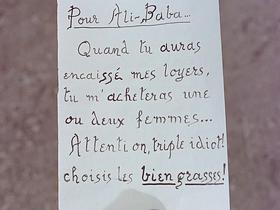 Pour Ali-Baba...
Quand tu auras
encaissé mes loyers,
tu m'acheteras une
ou deux femmes...
Attention, triple idiot!
choisis les bien grasses!